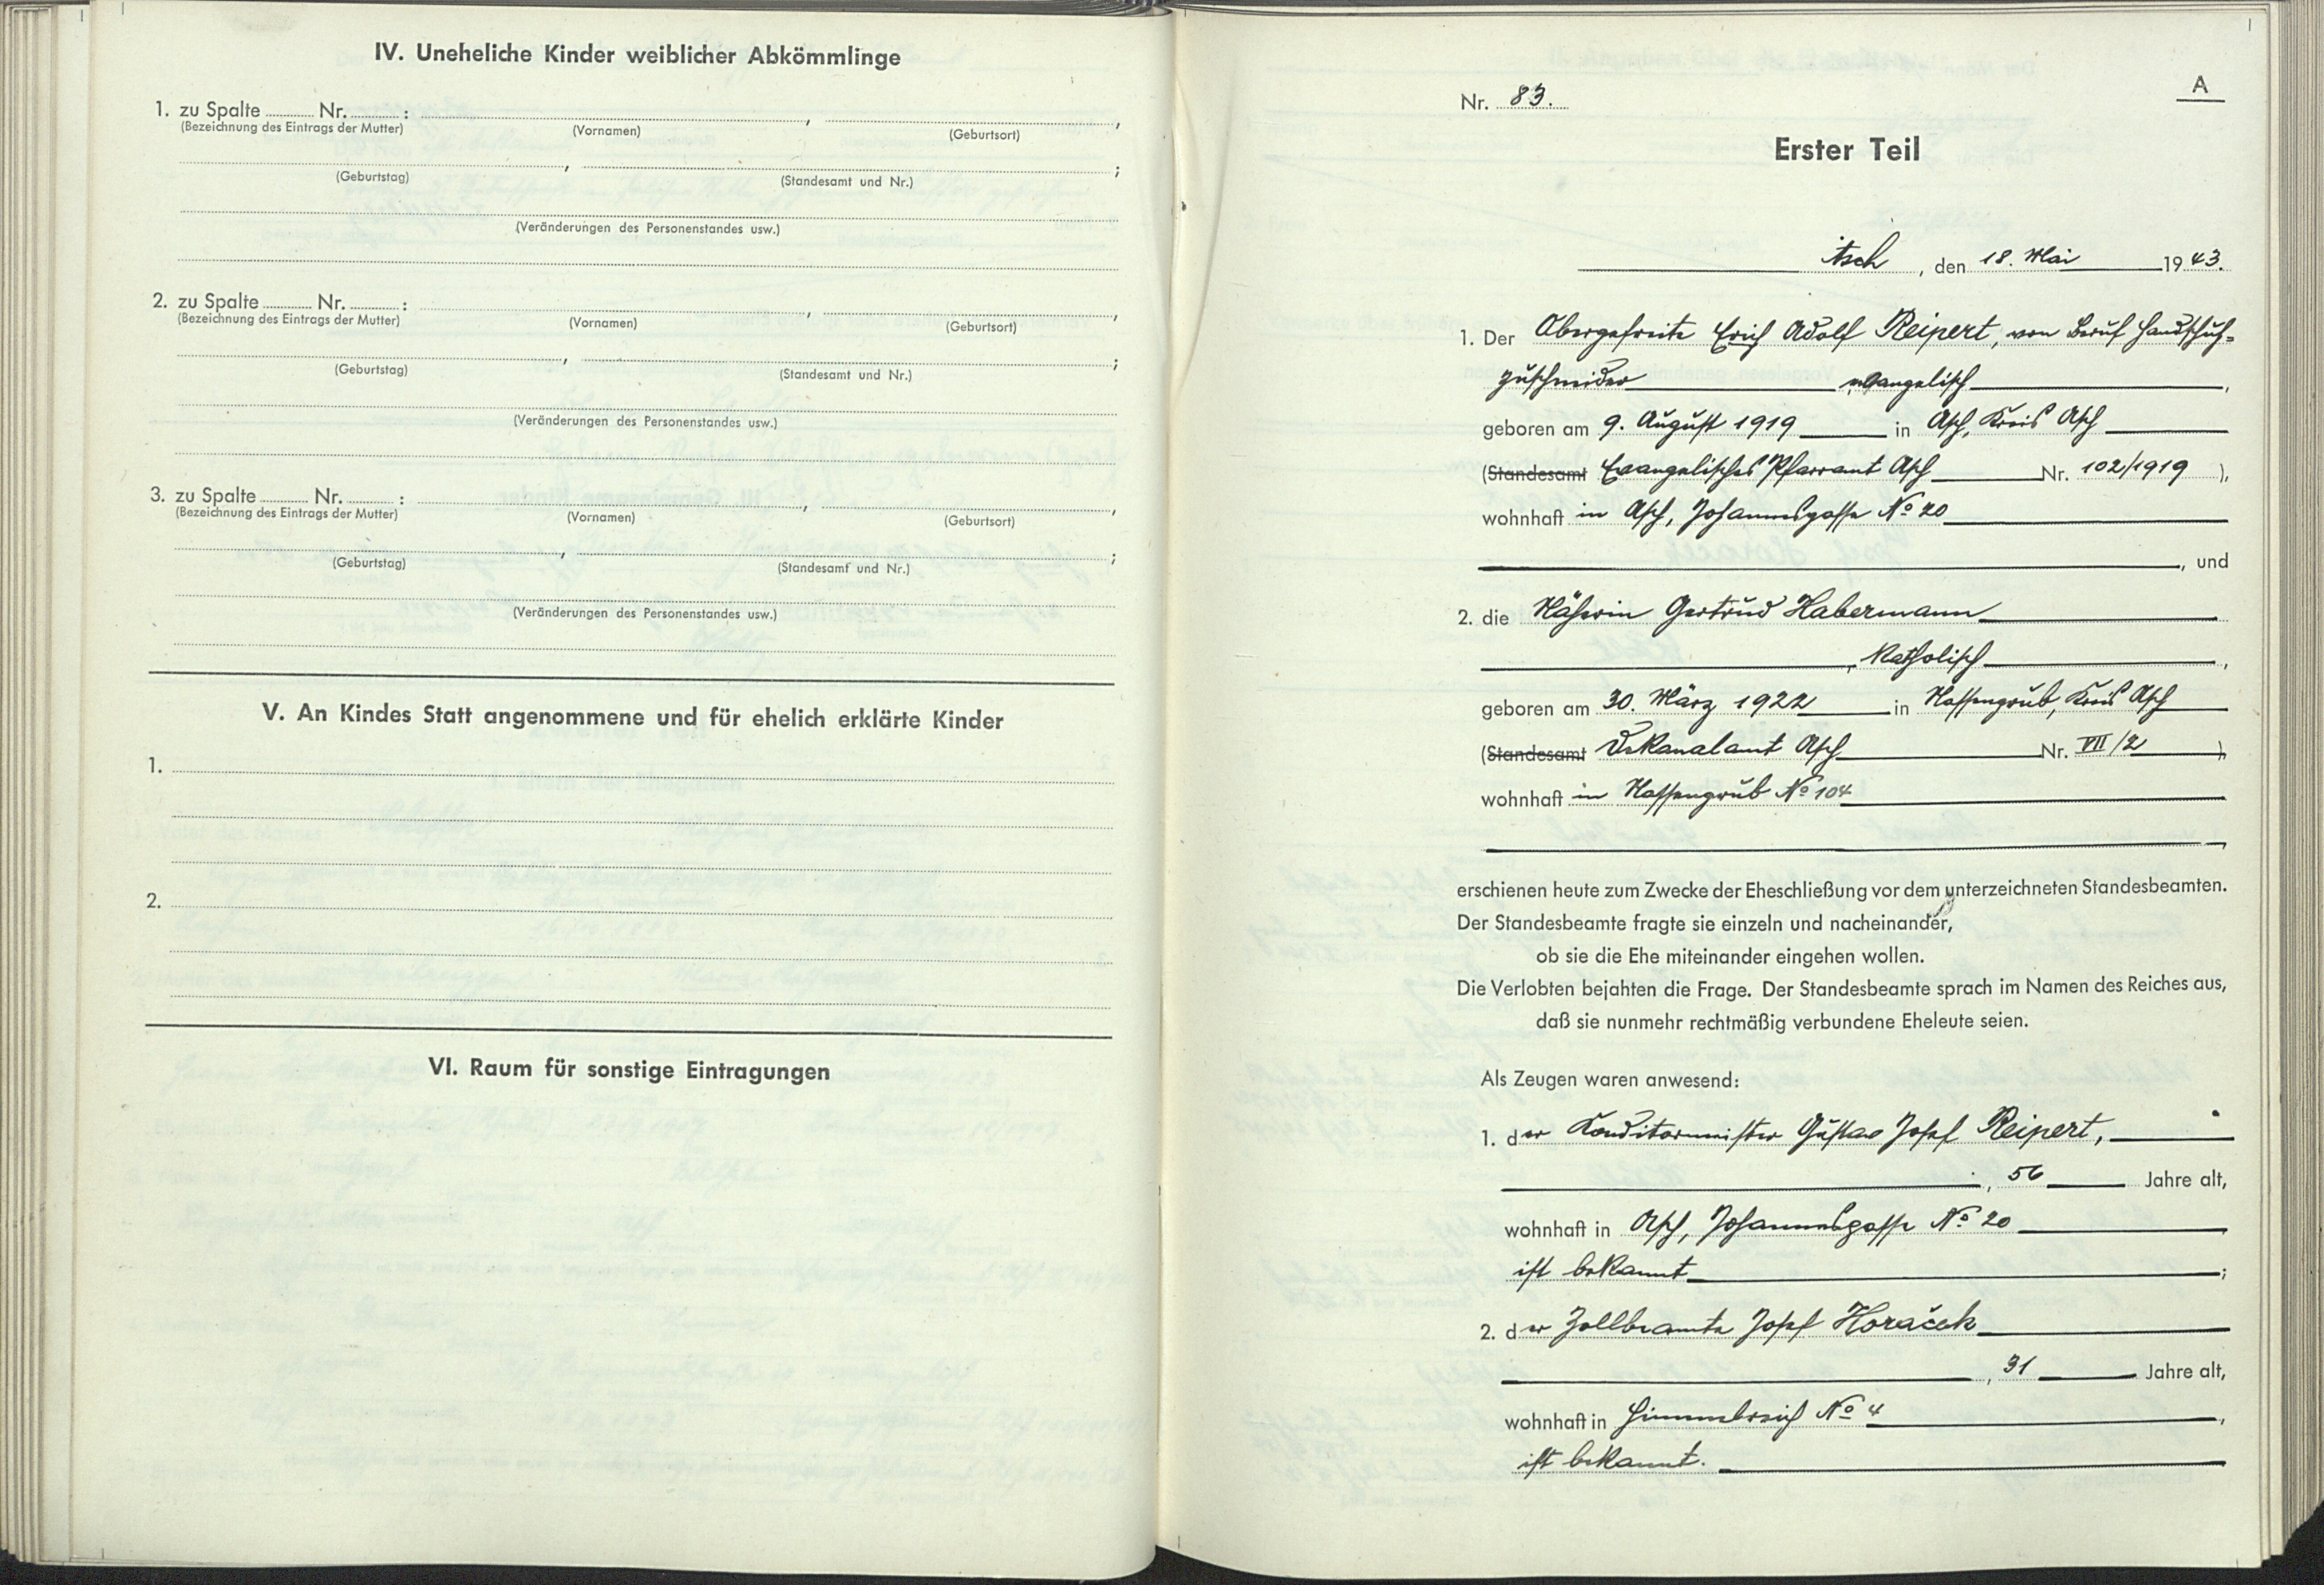 IV. Uneheliche Kinder weiblicher Abkömmlinge
1. zu Spalte Nr. : , ,
(Bezeichnung des Eintrags der Mutter) (Vornamen) (Geburtsort)
, ;
(Geburtstag) (Standesamt und Nr.)
(Veränderungen des Personenstandes usw.)
2. zu Spalte Nr. : , ,
(Bezeichnung des Eintrags der Mutter) (Vornamen) (Geburtsort)
, ;
(Geburtstag) (Standesamt und Nr.)
(Veränderungen des Personenstandes usw.)
3. zu Spalte Nr. : , ,
(Bezeichnung des Eintrags der Mutter) (Vornamen) (Geburtsort)
, ;
(Geburtstag) (Standesamt und Nr.)
(Veränderungen des Personenstandes usw.)
V. An Kindes Statt angenommene und für ehelich erklärte Kinder
1.
2.
VI. Raum für sonstige Eintragungen
A
Nr. 83.
Erster Teil
Asch, den 18. Mai 1943.
1. Der Obergefreite Erich Adolf Reipert, von Beruf Handschuh=
zuschneider, evangelisch,
geboren am 9. August 1919 in Asch, Kreis Asch
(Standesamt Evangelisches Pfarramt Asch Nr. 102/1919),
wohnhaft in Asch, Johannesgasse No 20
, und
2. die Näherin Gertrud Habermann
, katholisch,
geboren am 30. März 1922 in Nassengrub, Kreis Asch
(Standesamt Dekanalamt Asch Nr. VII/2)
wohnhaft in Nassengrub No 104
,
erschienen heute zum Zwecke der Eheschließung vor dem unterzeichneten Standesbeamten.
Der Standesbeamte fragte sie einzeln und nacheinander,
ob sie die Ehe miteinander eingehen wollen.
Die Verlobten bejahten die Frage. Der Standesbeamte sprach im Namen des Reiches aus,
daß sie nunmehr rechtmäßig verbundene Eheleute seien.
Als Zeugen waren anwesend:
1. der Konditormeister Gustav Josef Reipert,
, 56 Jahre alt,
wohnhaft in Asch, Johannesgasse No 20
ist bekannt;
2. der Zollbeamte Josef Horaček
, 31 Jahre alt,
wohnhaft in Himmelreich No 4,
ist bekannt.